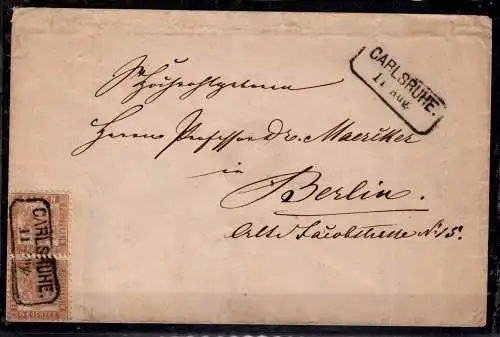 CARLSRUHE.
11 Aug.
Sr Hochwohlgeboren
Herrn Professor Dr. Maercker
in
Berlin.
Alte Jacobstrasse No 15.
CARLSRUHE.
11 Aug.
KREUZER